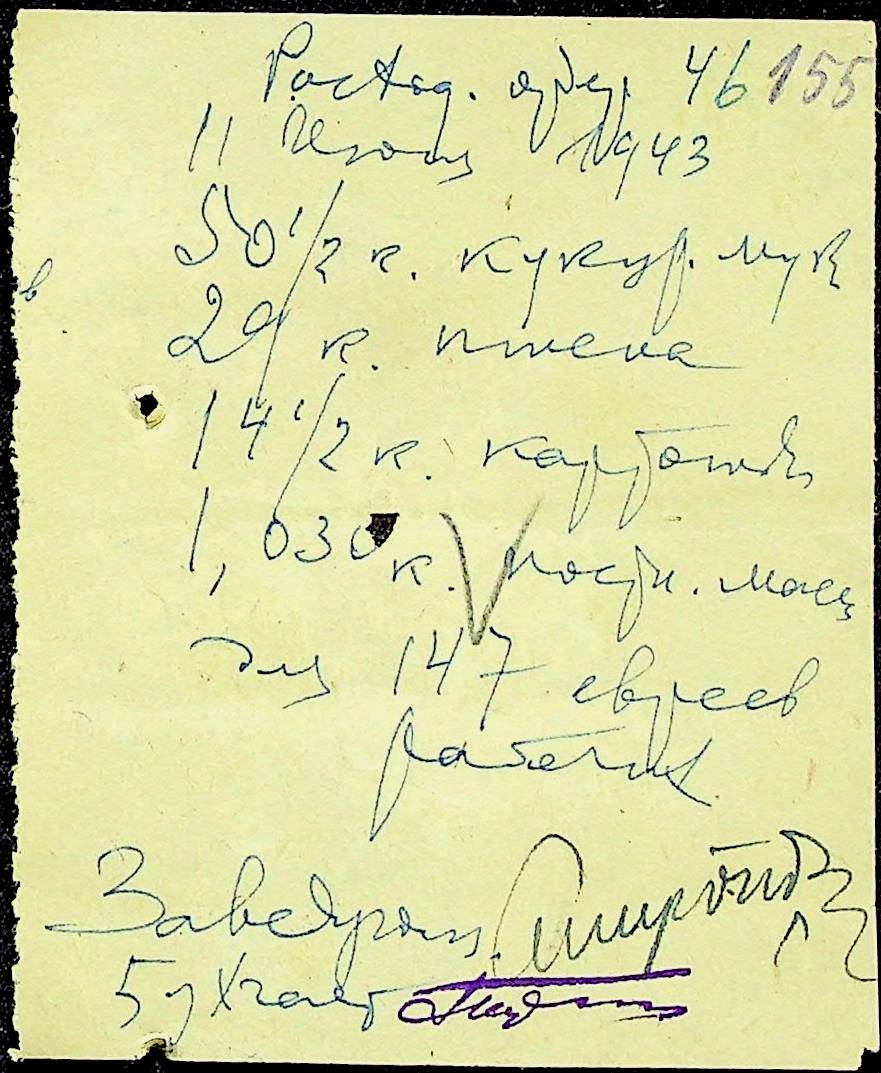 Расход. ордер 46 155
11 Июня 1943
50 1/2 к. кукур. муки
29 к. пшена
14 1/2 к. картошки
1,030 к. постн. масла
для 147 евреев
рабочих
Заведующ.
Бухгалт